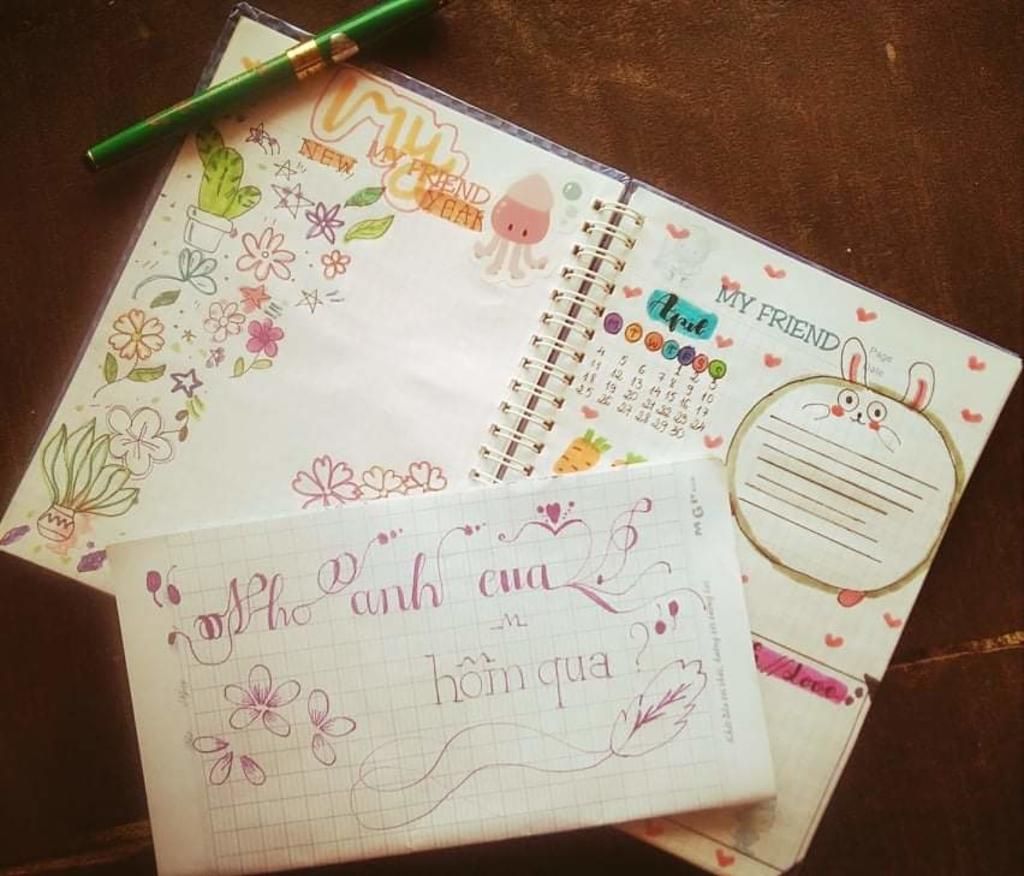 My
NEW MY FRIEND
YEAR
April
M T W T F S S
1 2 3
4 5 6 7 8 9 10
11 12 13 14 15 16 17
18 19 20 21 22 23 24
25 26 27 28 29 30
MY FRIEND
Page
Love
Nho anh cua
hôm qua ?